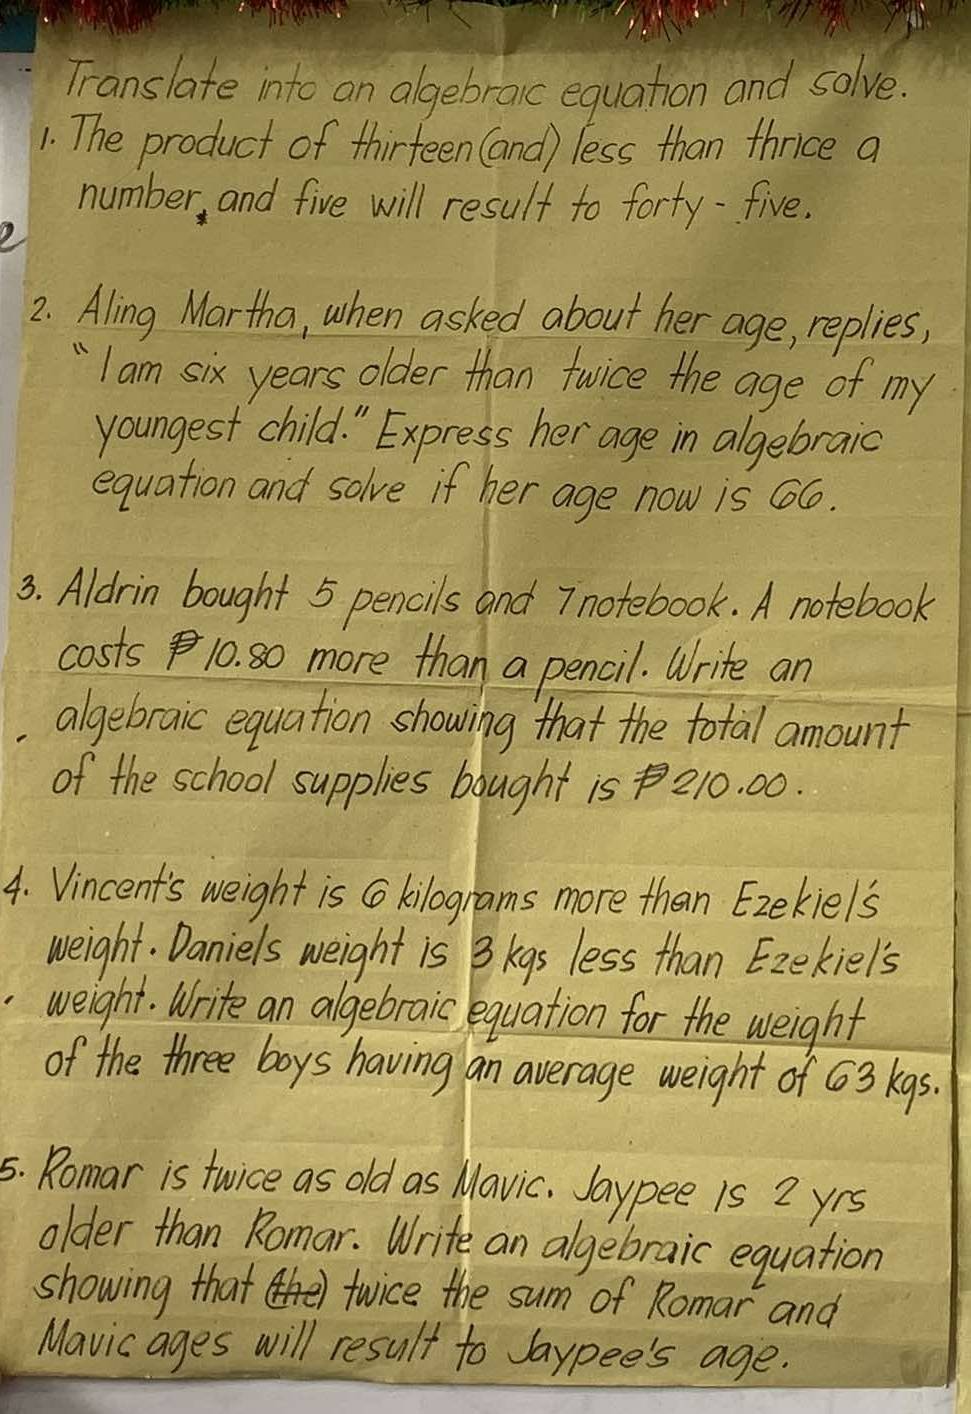 Translate into an algebraic equation and solve.
1. The product of thirteen (and) less than thrice a
number, and five will result to forty - five.
2. Aling Martha, when asked about her age, replies,
"I am six years older than twice the age of my
youngest child." Express her age in algebraic
equation and solve if her age now is 66.
3. Aldrin bought 5 pencils and 7 notebook. A notebook
costs ₱10.80 more than a pencil. Write an
algebraic equation showing that the total amount
of the school supplies bought is ₱210.00.
4. Vincent's weight is 6 kilograms more than Ezekiel's
weight. Daniels weight is 3 kgs less than Ezekiel's
weight. Write an algebraic equation for the weight
of the three boys having an average weight of 63 kgs.
5. Romar is twice as old as Mavic. Jaypee is 2 yrs
older than Romar. Write an algebraic equation
showing that (the) twice the sum of Romar and
Mavic ages will result to Jaypee's age.